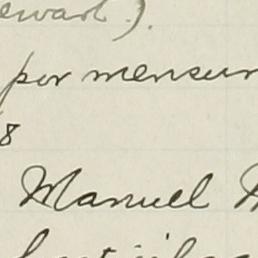 ewart).
por mensur
8
Manuel